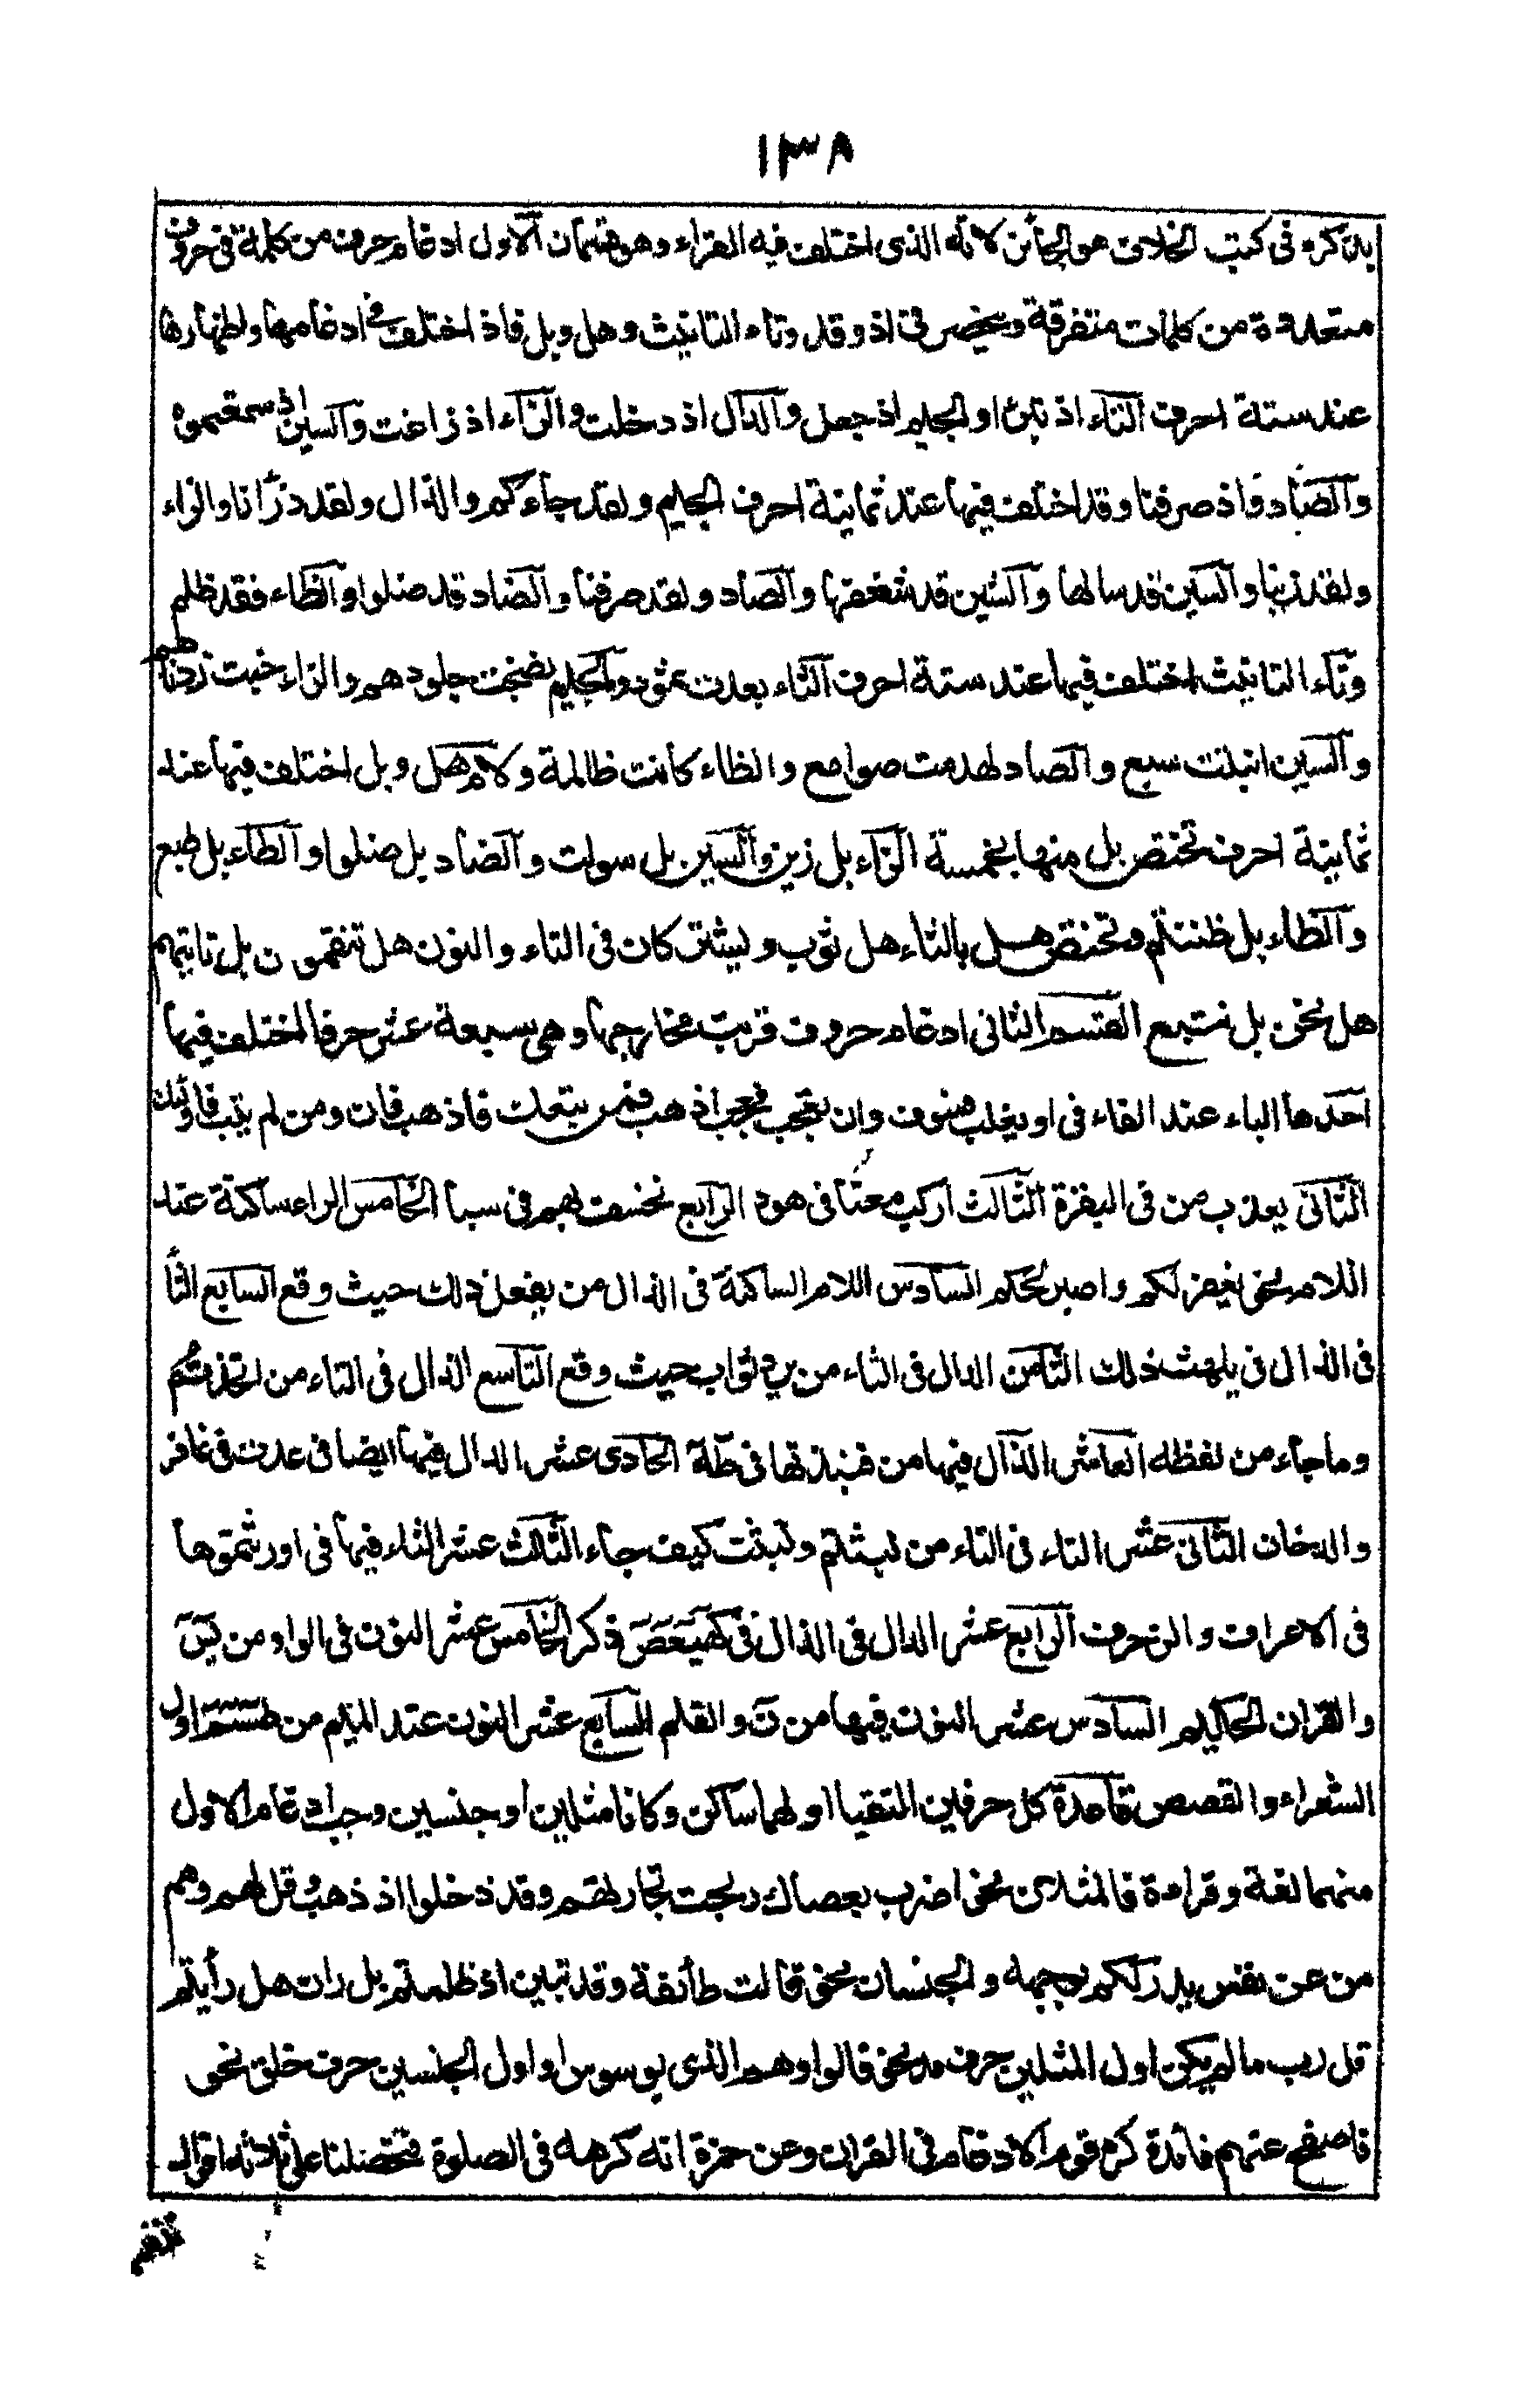 ١٣٨
بذكره فى كتب الخلاف هو الجائز لانه الذى اختلف فيه القراء وهو قسمان الاول ادغام حرف من كلمة فى حروف
متعددة من كلمات متفرقة وينحصر فى اذ وقد وتاء التانيث وهل وبل فاذ اختلف فى ادغامها واظهارها
عند ستة احرف التاء اذ تبرا والجيم اذ جعل والدال اذ دخلت والزاء اذ زاغت والسين اذ سمعتموه
والصاد واذ صرفنا وقد اختلف فيها عند ثمانية احرف الجيم ولقد جاءكم والذال ولقد ذرانا والزاء
ولقد زينا والسين قد سالها والشين قد شغفها والصاد ولقد صرفنا والضاد قد ضلوا والظاء فقد ظلم
وتاء التانيث اختلف فيها عند ستة احرف الثاء بعدت ثمود والجيم نضجت جلودهم والزاء خبت زدناهم
والسين انبتت سبع والصاد لهدمت صوامع والظاء كانت ظالمة ولام هل وبل اختلف فيها عند
ثمانية احرف تختص بل منها بخمسة الزاء بل زين والسين بل سولت والضاد بل ضلوا والطاء بل طبع
والظاء بل ظننتم وتختص هل بالثاء هل ثوب ويشتركان فى التاء والنون هل تنقمون بل تاتيهم
هل نحن بل نتبع القسم الثانى ادغام حروف قربت مخارجها وهى سبعة عشر حرفا اختلف فيها
احدها الباء عند الفاء فى او يغلب فسوف وان تعجب فعجب اذهب فمن تبعك فاذهب فان ومن لم يتب فاولئك
الثانى يعذب من فى البقرة الثالث اركب معنا فى هود الرابع نخسف بهم فى سبا الخامس الراء ساكنة عند
اللام نحو يغفر لكم واصبر لحكم السادس اللام الساكنة فى الذال من يفعل ذلك حيث وقع السابع الثا
فى الذال فى يلهث ذلك الثامن الدال فى الثاء من يرد ثواب حيث وقع التاسع الذال فى التاء من اتخذتم
وما جاء من لفظه العاشر الذال فيها من فنبذتها فى طه الحادى عشر الذال فيها ايضا فى عذت فى غافر
والدخان الثانى عشر الثاء فى التاء من لبثتم ولبثت كيف جاء الثالث عشر الثاء فيها فى اورثتموها
فى الاعراف والزخرف الرابع عشر الدال فى الذال فى كهيعص ذكر الخامس عشر النون فى الواو من يس
والقران الحكيم السادس عشر النون فيها من ن والقلم السابع عشر النون عند الميم من طسم اول
الشعراء والقصص قاعدة كل حرفين التقيا اولهما ساكن وكانا مثلين او جنسين وجب ادغام الاول
منهما لغة وقراءة فالمثلان نحو اضرب بعصاك ربحت تجارتهم وقد دخلوا اذ ذهب وقل لهم وهم
من عن نفس يدرككم يوجهه والجنسان نحو قالت طائفة وقد تبين اذ ظلمتم بل ران هل رأيتم
قل رب ما لم يكن اول المثلين حرف مد نحو قالوا وهم الذى يوسوس او اول الجنسين حرف حلق نحو
فاصفح عنهم فائدة كره قوم الادغام فى القران وعن حمزة انه كرهه فى الصلوة فتحصلنا على ثلاثة اقوال